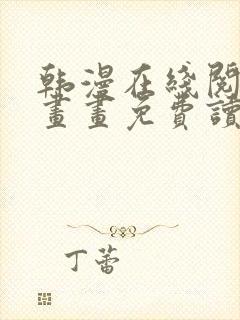 韩漫在线阅
画画免费读
丁蕾